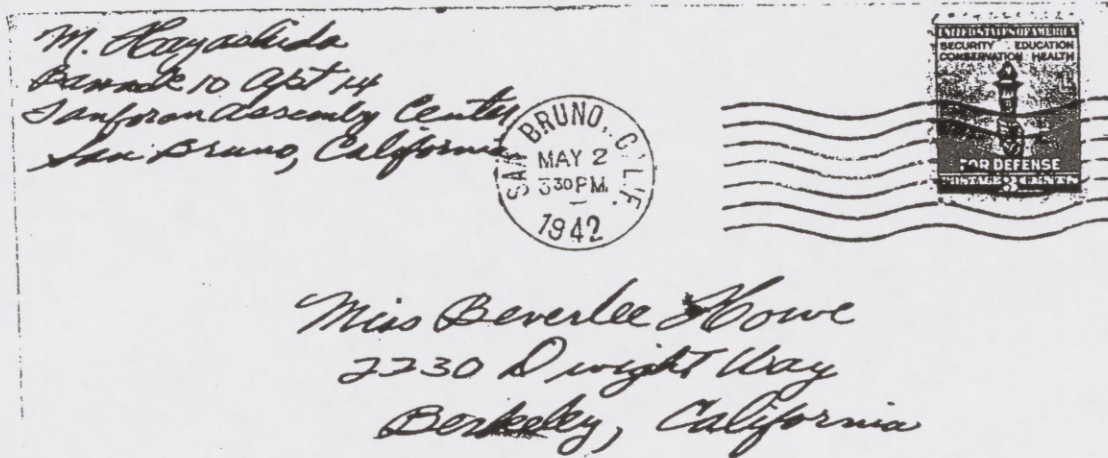 M. Hayashida
Barrack 10 Apt 14
Tanforan Assembly Center
San Bruno, California
SAN BRUNO, CALIF.
MAY 2
330 PM.
1942
UNITED STATES OF AMERICA
SECURITY EDUCATION
CONSERVATION HEALTH
FOR DEFENSE
POSTAGE 3 CENTS
Miss Beverlee Howe
2230 Dwight Way
Berkeley, California